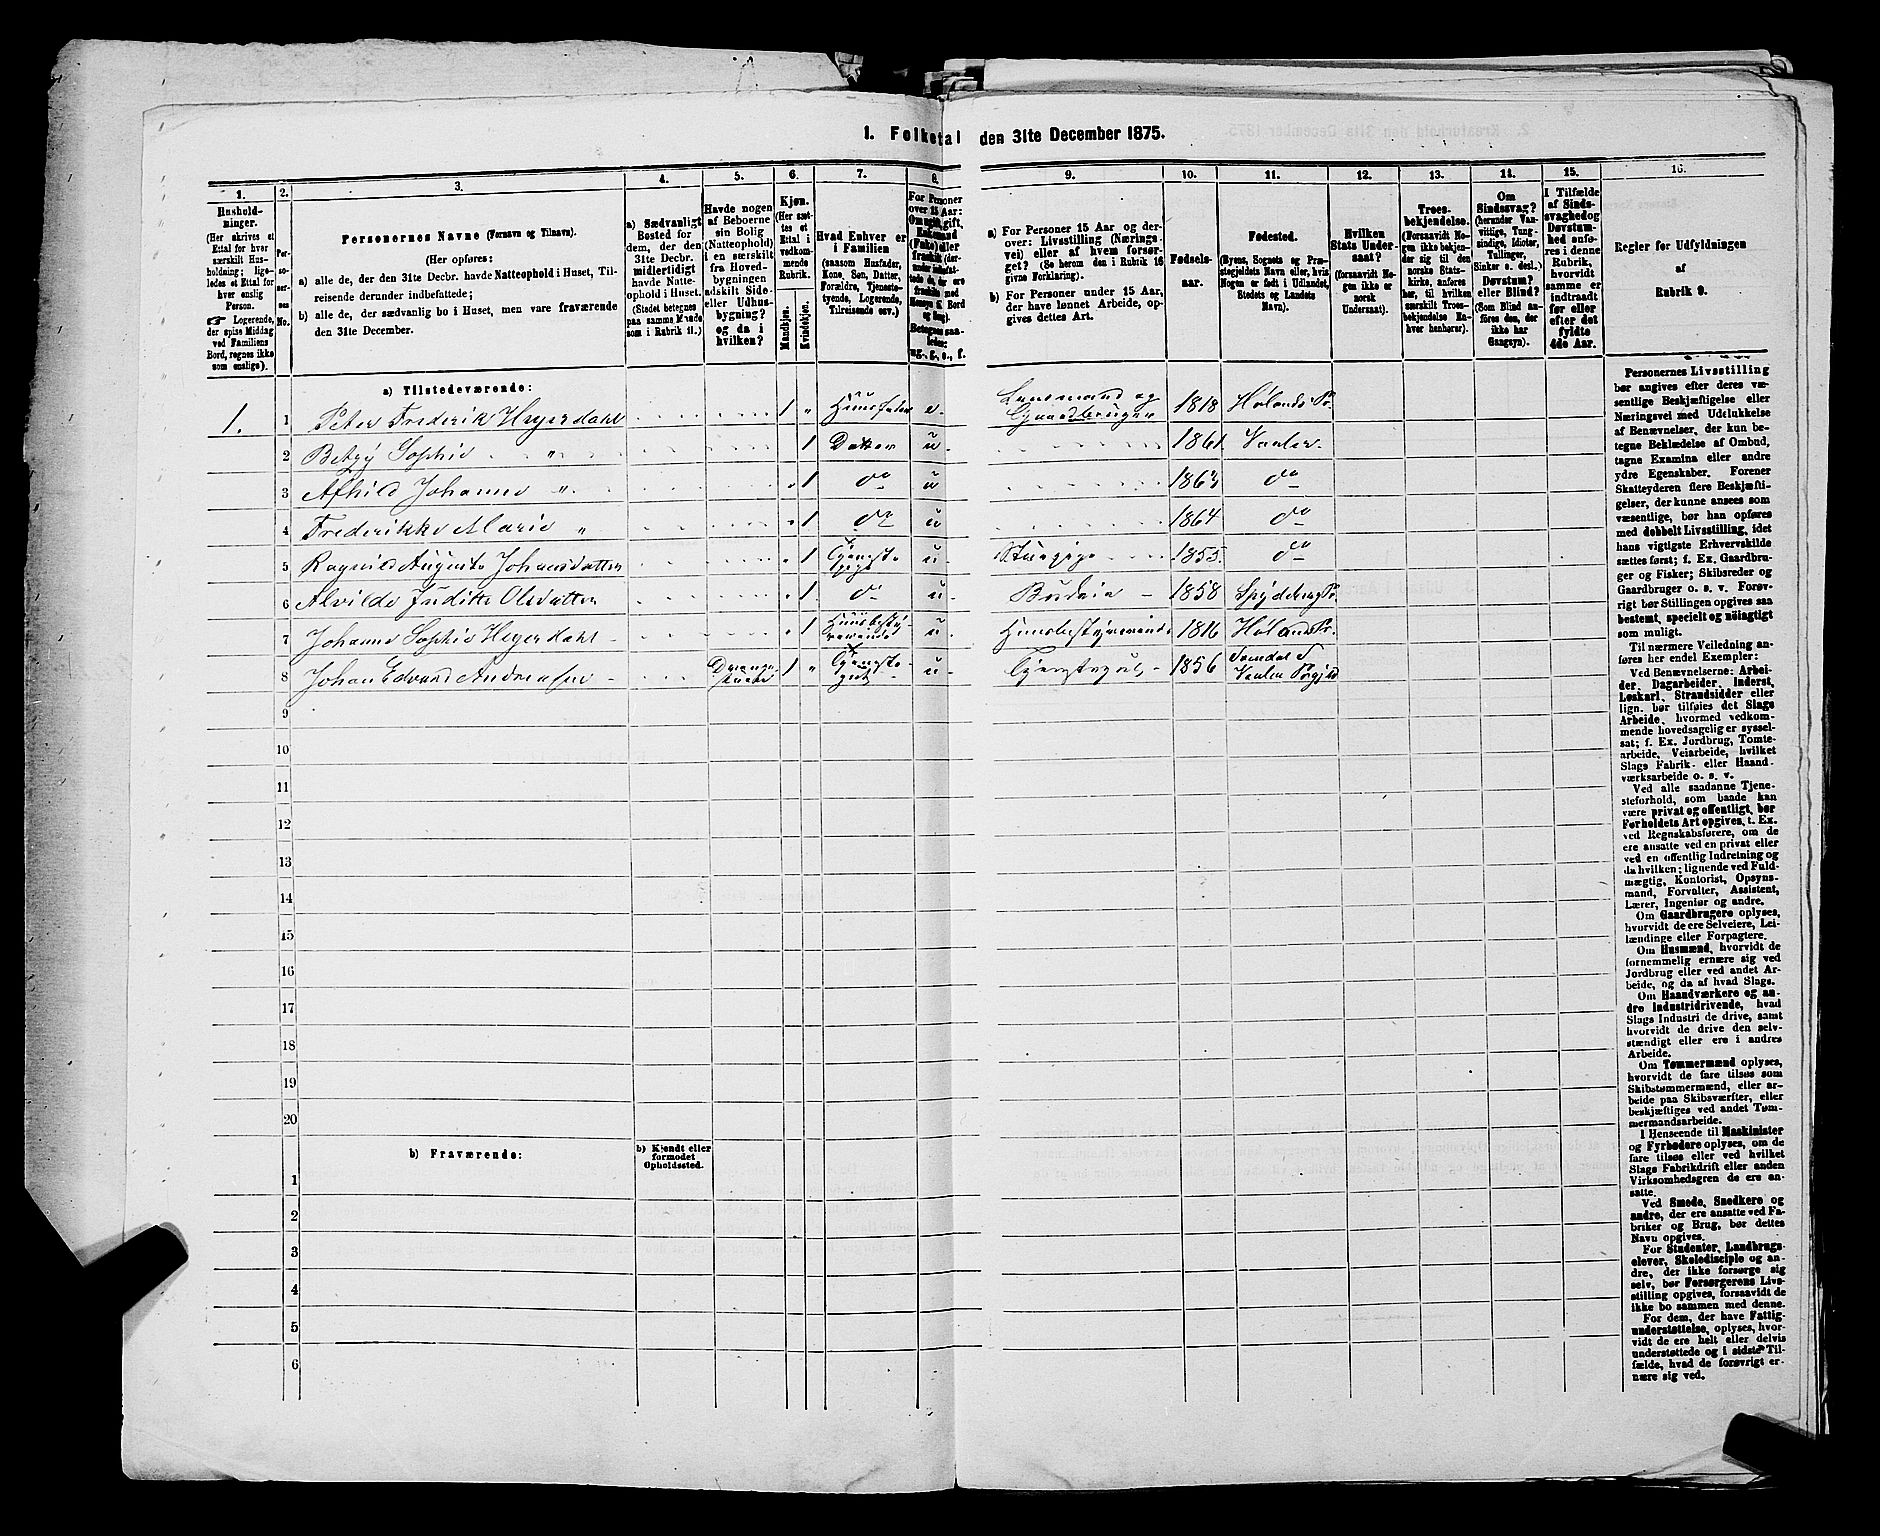 1. Folketal den 31te December 1875.
1. 2. 3. 4. 5. 6. 7. 8. 9. 10. 11. 12. 13. 14. 15. 16.
Hushold-
ninger.
(Her skrives et
Ettal for hver
særskilt Hus-
holdning; lige-
ledes et Ettal for
hver enslig
Person.
☞ Logerende,
der spise Middag
ved Familiens
Bord, regnes ikke
som enslige).
Per-
so-
ner-
nes
No.
Personernes Navne (Fornavn og Tilnavn).
(Her opføres:
a) alle de, der den 31te Decbr. havde Natteophold i Huset, Til-
reisende derunder indbefattede;
b) alle de, der sædvanlig bo i Huset, men vare fraværende
den 31te December.
a) Sædvanligt
Bosted for
dem, der den
31te Decbr.
midlertidigt
havde Natte-
ophold i Huset.
(Stedet betegnes
paa samme Maade
som i Rubrik 11.)
Havde nogen
af Beboerne
sin Bolig
(Natteophold)
i en særskilt
fra Hoved-
bygningen
adskilt Side-
eller Udhus-
bygning?
og da i
hvilken?
Kjøn.
(Her sæt-
tes et
Ettal i
vedkom-
mende
Rubrik.
Mandkjøn.
Kvindekjøn.
Hvad Enhver er
i Familien
(saasom Husfader,
Kone, Søn, Datter,
Forældre, Tjeneste-
tyende, Logerende,
Tilreisende osv.)
For Personer
over 15 Aar:
Betegnes saa-
ledes:
ug., g., e., f.
a) For Personer 15 Aar og der-
over: Livsstilling (Nærings-
vei) eller af hvem forsør-
get? (Se herom den i Rubrik 16
givne Forklaring).
b) For Personer under 15 Aar,
der have lønnet Arbeide, op-
gives dettes Art.
Fødsels-
aar.
Fødested.
(Byens, Sognets og Præ-
stegjeldets Navn eller, hvis
Nogen er født i Udlandet,
Stedets og Landets
Navn).
Hvilken
Stats Under-
saat?
(forsaavidt No-
gen ikke er
norsk
Undersaat).
Troes-
bekjendelse.
(Forsaavidt No-
gen ikke bekjen-
der sig til den
norske Stats-
kirke, anføres
her, til hvilken
særskilt Troes-
bekjendelse En-
hver henhører).
Om
Sindssvag?
(herunder Van-
vittige, Tung-
sindige, Idioter,
Tullinger,
Sinker o. desl.)
Døvstum?
eller Blind?
(Som Blind an-
føres den, der
ikke har
Gangsyn).
I Tilfælde
af Sinds-
svaghed og
Døvstum-
hed anfø-
res i denne
Rubrik,
hvorvidt
samme er
indtraadt
før eller
efter det
fyldte
4de Aar.
Regler for Udfyldningen
af
Rubrik 9.
a) Tilstedeværende:
1. 1 Peter Frederik Heyerdahl 1 " Huusfader e. Lensmand og Gaardbruger 1818 Hølands Pr.
2 Betzy Sophie " 1 Datter u 1861 Vaaler
3 " " 1 do u 1863 do
4 Frederikke Marie " " 1 do u 1864 do
5 Ragnild Auguste Johansdatter " 1 Tjeneste pige u Stuepige 1855 do
6 Alvilde Juditte Olsdatter " 1 do u Budeie 1858 Spydeberg Pr.
7 Johanne Sophie Heyerdahl " 1 Huusbesty- rerende u Huusbestyrerinde 1816 Hølands Pr.
8 Johan Edvard Andreasen Drenge- stuen 1 " Tjeneste- gut u Tjenestegut 1856 Vaaler Prgjld
9
10
11
12
13
14
15
16
17
18
19
20
b) Fraværende:
b) Kjendt eller
formodet
Opholdssted.
1
2
3
4
5
6
Personernes Livsstilling
bør angives efter deres væ-
sentlige Beskjæftigelse eller
Næringsvei med Udelukkelse
af Benævnelser, der kun be-
tegne Beklædelse af Ombud,
tagne Examina eller andre
ydre Egenskaber. Forener
Skatteyderen flere Beskjæfti-
gelser, der kunne ansees som
væsentlige, bør han opføres
med dobbelt Livsstilling, idet
hans vigtigste Erhvervskilde
sættes først; f. Ex. Gaardbru-
ger og Fisker; Skibsreder og
Gaardbruger o. s. v. Forøv-
rigt bør Stillingen opgives saa
bestemt, specielt og nøiagtigt
som muligt.
Til nærmere Veiledning an-
føres her endel Exempler:
Ved Benævnelserne: Arbei-
der, Dagarbeider, Inderst,
Løskarl, Strandsidder eller
lign. bør tilføies det Slags
Arbeide, hvormed vedkom-
mende hovedsagelig er syssel-
sat; f. Ex. Jordbrug, Tomte-
arbeide, Veiarbeide, hvilket
Slags Fabrik- eller Haand-
værksarbeide o. s. v.
Ved alle saadanne Tjene-
steforhold, som baade kan
være privat og offentligt, bør
Forholdets Art opgives, t. Ex.
ved Regnskabsførere, om de
ere ansatte ved en privat eller
ved en offentlig Indretning og
da hvilken; lignende ved Fuld-
mægtig, Kontorist, Opsyns-
mand, Forvalter, Assistent,
Lærer, Ingeniør og andre.
Om Gaardbrugere oplyses,
hvorvidt de ere Selveiere, Lei-
lændinge eller Forpagtere.
Om Husmænd, hvorvidt de
fornemmelig ernære sig ved
Jordbrug eller ved andet Ar-
beide, og da af hvad Slags.
Om Haandværkere og an-
dre Industridrivende, hvad
Slags Industri de drive, samt
hvorvidt de drive den selv-
stændigt eller ere i andres
Arbeide.
Om Tømmermænd oplyses,
hvorvidt de fare tilsøs som
Skibstømmermænd, eller ar-
beide paa Skibsværfter, eller
beskjæftiges ved andet Tøm-
mermandsarbeide.
I Henseende til Maskinister
og Fyrbødere oplyses, om de
fare tilsøs eller ved hvilket
Slags Fabrikdrift eller anden
Virksomhedsgren de ere an-
satte.
Ved Smede, Snedkere og
andre, der ere ansatte ved Fa-
briker og Brug, bør dettes
Navn opgives.
For Studenter, Landbrugs-
elever, Skoledisciple og an-
dre, der ikke forsørge sig
selv, bør Forsørgerens Livs-
stilling opgives, forsaavidt de
ikke bo sammen med denne.
For dem, der have Fattig-
understøttelse, oplyses, hvor-
vidt de ere helt eller delvis
understøttede og i sidste Til-
fælde, hvad de forøvrigt er-
nære sig ved.